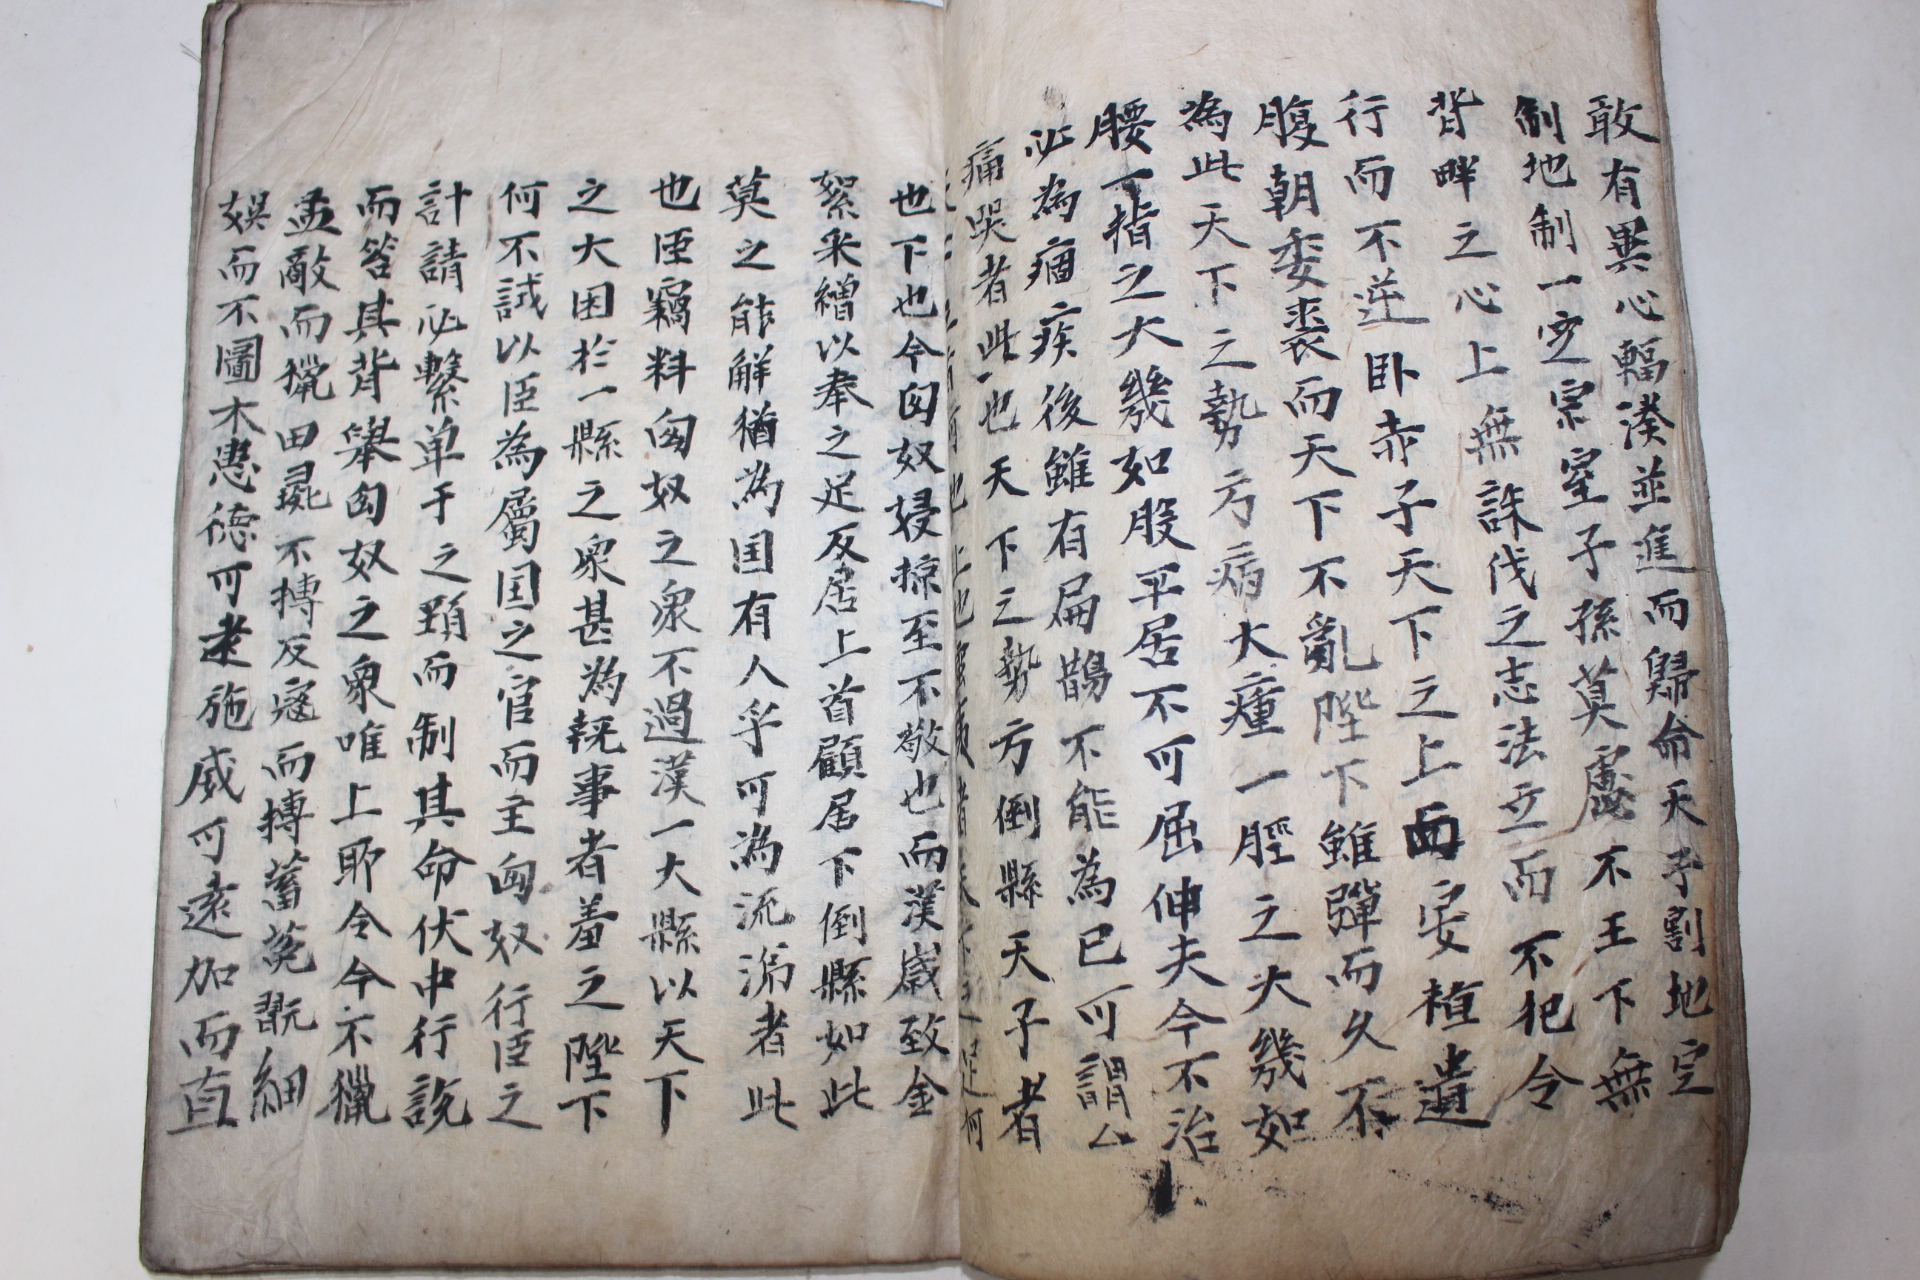 敢有異心輻湊並進而歸命天子割地定
制地制一定宗室子孫莫慮不王下無
背畔之心上無誅伐之志法立而不犯令
行而不逆卧赤子天下之上而安植遺
腹朝委裘而天下不亂陛下雖彈而久不
為此天下之勢方病大瘇一脛之大幾如
腰一指之大幾如股平居不可屈伸夫今不治
必為痼疾後雖有扁鵲不能為已可謂
痛哭者此一也天下之勢方倒縣天子者
也下也今匈奴嫚掠至不敬也而漢歲致金
絮采繒以奉之足反居上首顧居下倒縣如此
莫之能解猶為囯有人乎可為流涕者此
也臣竊料匈奴之衆不過漢一大縣以天下
之大困於一縣之衆甚為執事者羞之陛下
何不試以臣為屬囯之官而主匈奴行臣之
計請必繫单于之頸而制其命伏中行說
而笞其背舉匈奴之衆唯上耶令今不獵
孟敵而獵田彘不搏反寇而搏蓄菟翫細
娯而不圖大患德可遠施威可遠加而直